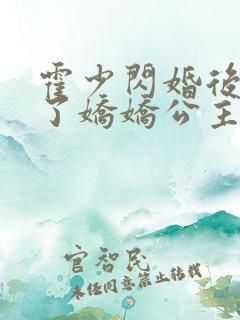 霍少閃婚後
了嬌嬌公主
官智民
未經同意禁止轉載